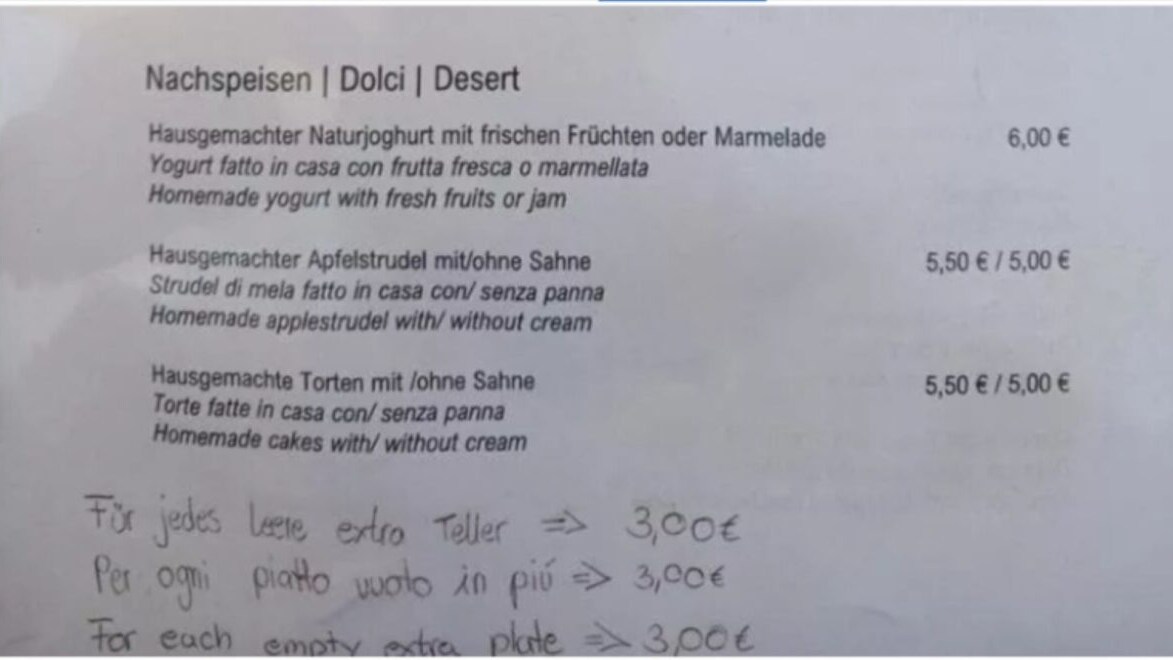 Nachspeisen | Dolci | Desert
Hausgemachter Naturjoghurt mit frischen Früchten oder Marmelade 6,00 €
Yogurt fatto in casa con frutta fresca o marmellata
Homemade yogurt with fresh fruits or jam
Hausgemachter Apfelstrudel mit/ohne Sahne 5,50 € / 5,00 €
Strudel di mela fatto in casa con/ senza panna
Homemade applestrudel with/ without cream
Hausgemachte Torten mit /ohne Sahne 5,50 € / 5,00 €
Torte fatte in casa con/ senza panna
Homemade cakes with/ without cream
Für jedes leere extra Teller => 3,00€
Per ogni piatto vuoto in piú => 3,00€
For each empty extra plate => 3,00€